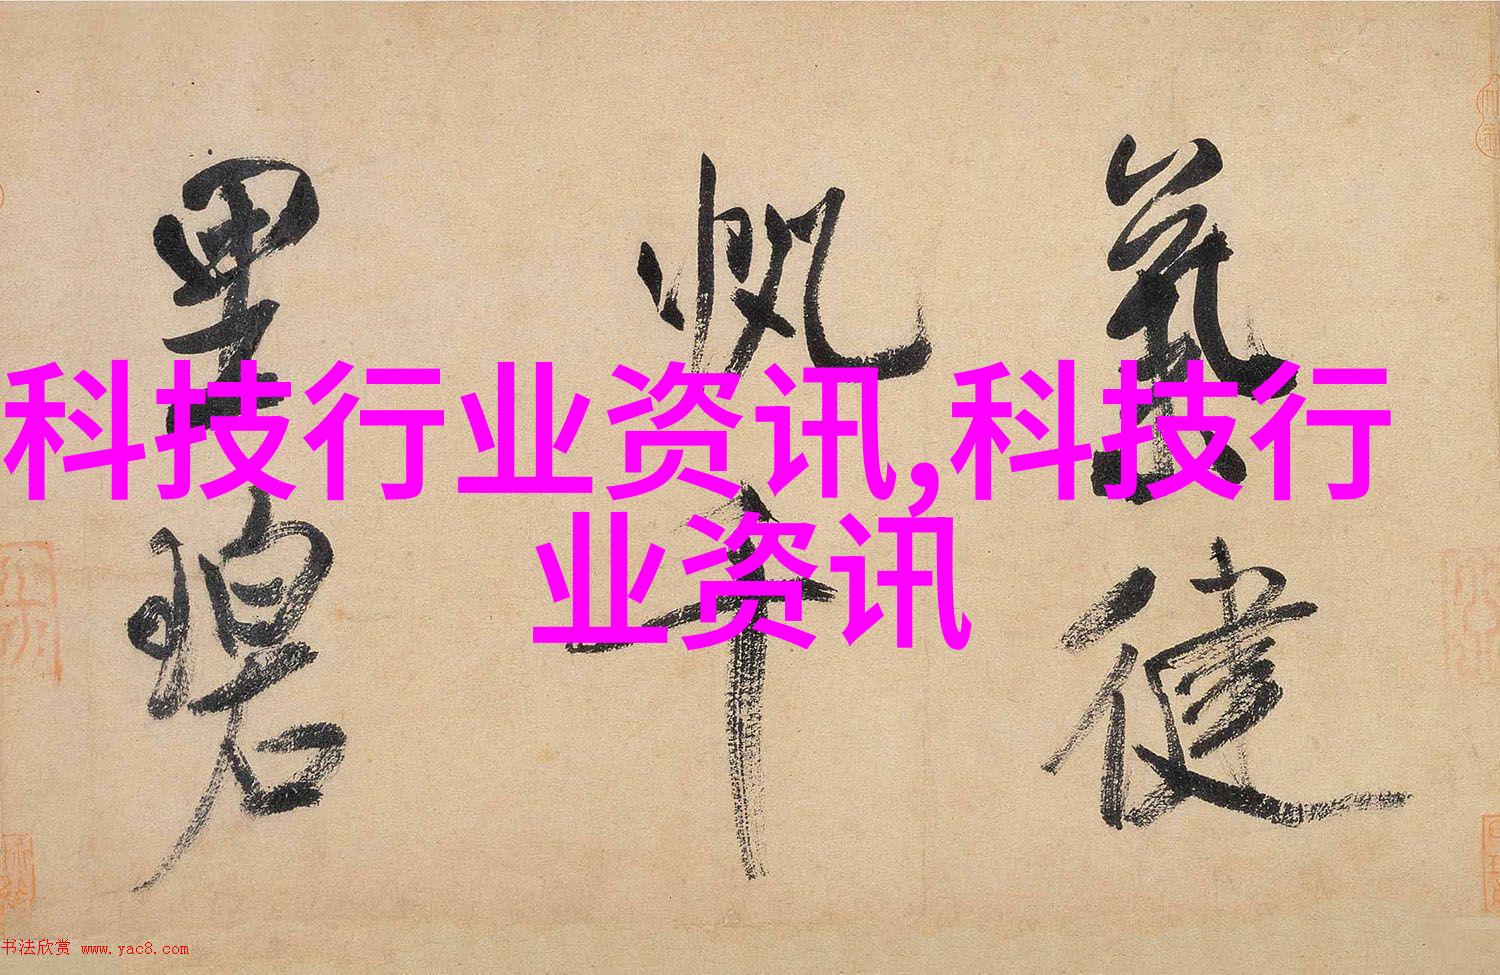 氣健
帆千
里碧
科技行业资讯,科技行
业资讯
书法欣赏 www.yac8.com